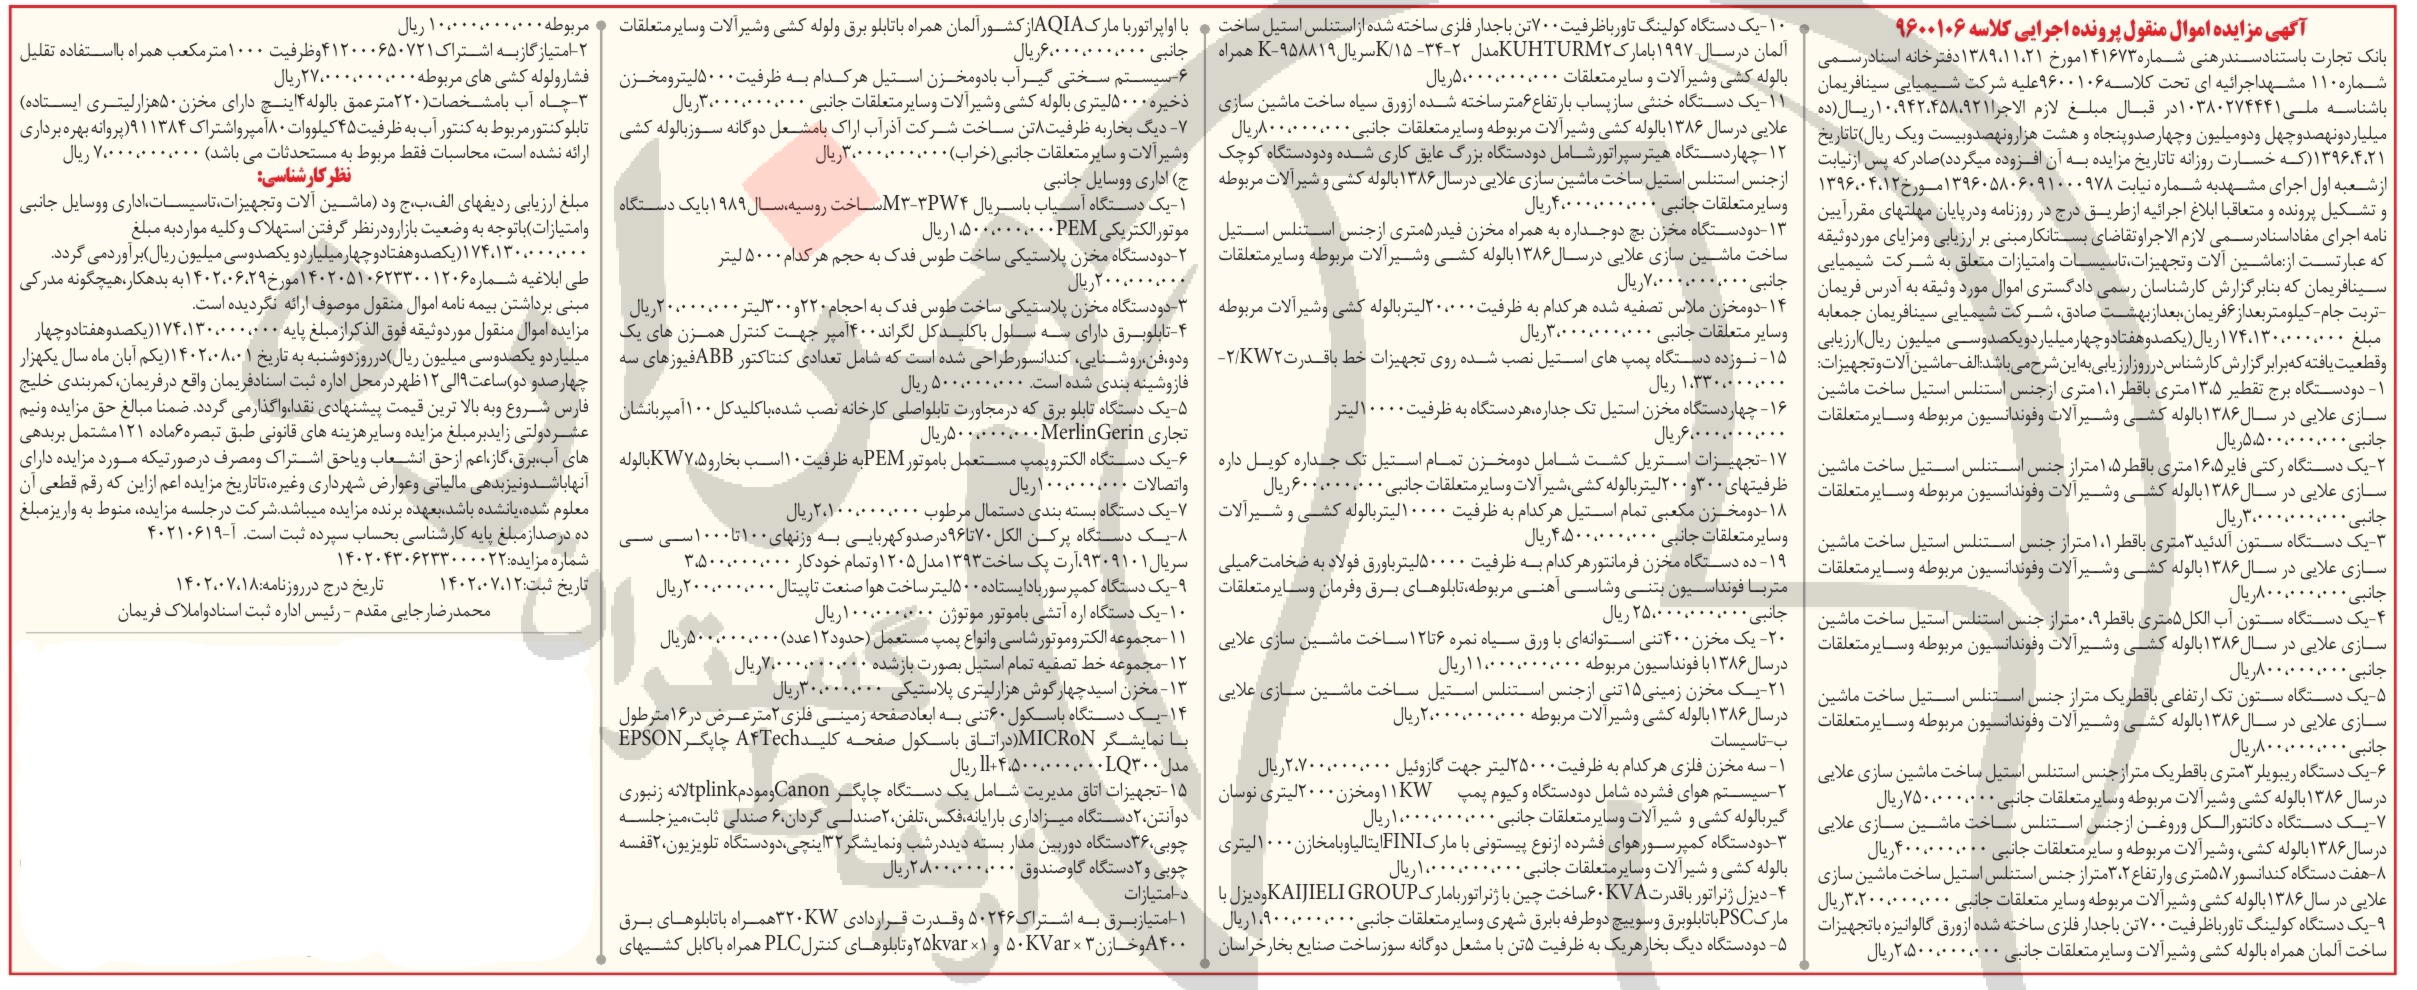 آگهی مزایده اموال منقول پرونده اجرایی کلاسه ۹۶۰۰۱۰۶
بانک تجارت باستناد سند رهنی شماره ۱۴۱۶۷۳ مورخ ۱۳۸۹،۱۱،۲۱ دفترخانه اسناد رسمی
شماره ۱۱۰ مشهد اجرائیه ای تحت کلاسه ۹۶۰۰۱۰۶ علیه شرکت شیمیایی سینا فریمان
باشناسه ملی ۱۰۳۸۰۲۷۴۴۴۱ در قبال مبلغ لازم الاجرا ۱۰،۹۴۲،۴۵۸،۹۲۱ ریال (ده
میلیارد و نهصد و چهل و دو میلیون و چهارصد و پنجاه و هشت هزار و نهصد و بیست و یک ریال) تا تاریخ
۱۳۹۶،۴،۲۱ (که خسارت روزانه تا تاریخ مزایده به آن افزوده میگردد) صادر که پس از نیابت
از شعبه اول اجرای مشهد به شماره نیابت ۱۳۹۶۰۵۸۰۶۰۹۱۰۰۰۹۷۸ مورخ ۱۳۹۶،۰۴،۱۲
و تشکیل پرونده و متعاقبا ابلاغ اجرائیه از طریق درج در روزنامه و در پایان مهلتهای مقرر آیین
نامه اجرای مفاد اسناد رسمی لازم الاجرا و تقاضای بستانکار مبنی بر ارزیابی و مزایای مورد وثیقه
که عبارتست از: ماشین آلات و تجهیزات، تاسیسات و امتیازات متعلق به شرکت شیمیایی
سینا فریمان که بنابر گزارش کارشناسان رسمی دادگستری اموال مورد وثیقه به آدرس فریمان
-تربت جام-کیلومتر بعد از ۶ فریمان، بعد از بهشت صادق، شرکت شیمیایی سینا فریمان جمعا به
مبلغ ۱۷۴،۱۳۰،۰۰۰،۰۰۰ ریال (یکصد و هفتاد و چهار میلیارد و یکصد و سی میلیون ریال) ارزیابی
و قطعیت یافته که برابر گزارش کارشناس در روز ارزیابی به این شرح می باشد: الف-ماشین آلات و تجهیزات:
۱- دو دستگاه برج تقطیر ۱۳،۵ متری باقطر ۱،۱ متری از جنس استنلس استیل ساخت ماشین
سازی علایی در سال ۱۳۸۶ بالوله کشی و شیرآلات و فوندانسیون مربوطه و سایر متعلقات
جانبی ۵،۵۰۰،۰۰۰،۰۰۰ ریال
۲-یک دستگاه رکتی فایر ۱۶،۵ متری باقطر ۱،۵ متر از جنس استنلس استیل ساخت ماشین
سازی علایی در سال ۱۳۸۶ بالوله کشی و شیرآلات و فوندانسیون مربوطه و سایر متعلقات
جانبی ۳،۰۰۰،۰۰۰،۰۰۰ ریال
۳-یک دستگاه ستون آلدئید ۳ متری باقطر ۱،۱ متر از جنس استنلس استیل ساخت ماشین
سازی علایی در سال ۱۳۸۶ بالوله کشی و شیرآلات و فوندانسیون مربوطه و سایر متعلقات
جانبی ۸۰۰،۰۰۰،۰۰۰ ریال
۴-یک دستگاه ستون آب الکل ۵ متری باقطر ۰،۹ متر از جنس استنلس استیل ساخت ماشین
سازی علایی در سال ۱۳۸۶ بالوله کشی و شیرآلات و فوندانسیون مربوطه و سایر متعلقات
جانبی ۸۰۰،۰۰۰،۰۰۰ ریال
۵-یک دستگاه ستون تک ارتفاعی باقطر یک متر از جنس استنلس استیل ساخت ماشین
سازی علایی در سال ۱۳۸۶ بالوله کشی و شیرآلات و فوندانسیون مربوطه و سایر متعلقات
جانبی ۸۰۰،۰۰۰،۰۰۰ ریال
۶-یک دستگاه ریبویلر ۳ متری باقطر یک متر از جنس استنلس استیل ساخت ماشین سازی علایی
در سال ۱۳۸۶ بالوله کشی و شیرآلات مربوطه و سایر متعلقات جانبی ۷۵۰،۰۰۰،۰۰۰ ریال
۷-یک دستگاه دکانتور الکل و روغن از جنس استنلس ساخت ماشین سازی علایی
در سال ۱۳۸۶ بالوله کشی، و شیرآلات مربوطه و سایر متعلقات جانبی ۴۰۰،۰۰۰،۰۰۰ ریال
۸-هفت دستگاه کندانسور ۵،۷ متری و ارتفاع ۳،۲ متر از جنس استنلس استیل ساخت ماشین سازی
علایی در سال ۱۳۸۶ بالوله کشی و شیرآلات مربوطه و سایر متعلقات جانبی ۳،۲۰۰،۰۰۰،۰۰۰ ریال
۹-یک دستگاه کولینگ تاور باظرفیت ۷۰۰ تن باجدار فلزی ساخته شده از ورق گالوانیزه باتجهیزات
ساخت آلمان همراه بالوله کشی و شیرآلات و سایر متعلقات جانبی ۲،۵۰۰،۰۰۰،۰۰۰ ریال
۱۰-یک دستگاه کولینگ تاور باظرفیت ۷۰۰ تن باجدار فلزی ساخته شده از استنلس استیل ساخت
آلمان در سال ۱۹۹۷ بامارک KUHTURM۲ مدل K/۱۵ -۳۴-۲ سریال K-۹۵۸۸۱۹ همراه
بالوله کشی و شیرآلات و سایر متعلقات ۵،۰۰۰،۰۰۰،۰۰۰ ریال
۱۱-یک دستگاه خنثی ساز پساب بارتفاع ۶ متر ساخته شده از ورق سیاه ساخت ماشین سازی
علایی در سال ۱۳۸۶ بالوله کشی و شیرآلات مربوطه و سایر متعلقات جانبی ۸۰۰،۰۰۰،۰۰۰ ریال
۱۲-چهار دستگاه هیتر سپراتور شامل دو دستگاه بزرگ عایق کاری شده و دو دستگاه کوچک
از جنس استنلس استیل ساخت ماشین سازی علایی در سال ۱۳۸۶ بالوله کشی و شیرآلات مربوطه
و سایر متعلقات جانبی ۴،۰۰۰،۰۰۰،۰۰۰ ریال
۱۳-دو دستگاه مخزن بچ دو جداره به همراه مخزن فیدر ۵ متری از جنس استنلس استیل
ساخت ماشین سازی علایی در سال ۱۳۸۶ بالوله کشی و شیرآلات مربوطه و سایر متعلقات
جانبی ۷،۰۰۰،۰۰۰،۰۰۰ ریال
۱۴-دو مخزن ملاس تصفیه شده هر کدام به ظرفیت ۲۰،۰۰۰ لیتر بالوله کشی و شیرآلات مربوطه
و سایر متعلقات جانبی ۳،۰۰۰،۰۰۰،۰۰۰ ریال
۱۵- نوزده دستگاه پمپ های استیل نصب شده روی تجهیزات خط باقدرت ۲/KW۲-
۱،۳۳۰،۰۰۰،۰۰۰ ریال
۱۶- چهار دستگاه مخزن استیل تک جداره، هر دستگاه به ظرفیت ۱۰۰۰۰ لیتر
۶،۰۰۰،۰۰۰،۰۰۰ ریال
۱۷-تجهیزات استریل کشت شامل دو مخزن تمام استیل تک جداره کویل داره
ظرفیتهای ۳۰۰ و ۲۰۰ لیتر بالوله کشی، شیرآلات و سایر متعلقات جانبی ۶۰۰،۰۰۰،۰۰۰ ریال
۱۸-دو مخزن مکعبی تمام استیل هر کدام به ظرفیت ۱۰۰۰۰ لیتر بالوله کشی و شیرآلات
و سایر متعلقات جانبی ۴،۵۰۰،۰۰۰،۰۰۰ ریال
۱۹- ده دستگاه مخزن فرمانتور هر کدام به ظرفیت ۵۰۰۰۰ لیتر باورق فولاد به ضخامت ۶ میلی
متر با فونداسیون بتنی و شاسی آهنی مربوطه، تابلوهای برق و فرمان و سایر متعلقات
جانبی ۲۵،۰۰۰،۰۰۰،۰۰۰ ریال
۲۰- یک مخزن ۴۰۰ تنی استوانه‌ای با ورق سیاه نمره ۶ تا ۱۲ ساخت ماشین سازی علایی
در سال ۱۳۸۶ با فونداسیون مربوطه ۱۱،۰۰۰،۰۰۰،۰۰۰ ریال
۲۱-یک مخزن زمینی ۱۵ تنی از جنس استنلس استیل ساخت ماشین سازی علایی
در سال ۱۳۸۶ بالوله کشی و شیرآلات مربوطه ۲،۰۰۰،۰۰۰،۰۰۰ ریال
ب-تاسیسات
۱- سه مخزن فلزی هر کدام به ظرفیت ۲۵۰۰۰ لیتر جهت گازوئیل ۲،۷۰۰،۰۰۰،۰۰۰ ریال
۲-سیستم هوای فشرده شامل دو دستگاه وکیوم پمپ ۱۱KW و مخزن ۲۰۰۰ لیتری نوسان
گیر بالوله کشی و شیرآلات و سایر متعلقات جانبی ۱،۰۰۰،۰۰۰،۰۰۰ ریال
۳-دو دستگاه کمپرسور هوای فشرده از نوع پیستونی با مارک FINI ایتالیا و بامخازن ۱۰۰۰ لیتری
بالوله کشی و شیرآلات و سایر متعلقات جانبی ۱،۰۰۰،۰۰۰،۰۰۰ ریال
۴- دیزل ژنراتور باقدرت ۶۰KVA ساخت چین با ژنراتور بامارک KAIJIELI GROUP و دیزل با
مارک PSC باتابلو برق و سوییچ دو طرفه بابرق شهری و سایر متعلقات جانبی ۱،۹۰۰،۰۰۰،۰۰۰ ریال
۵- دو دستگاه دیگ بخار هر یک به ظرفیت ۵ تن با مشعل دوگانه سوز ساخت صنایع بخار خراسان
با اواپراتور با مارک AQIA از کشور آلمان همراه باتابلو برق و لوله کشی و شیرآلات و سایر متعلقات
جانبی ۶،۰۰۰،۰۰۰،۰۰۰ ریال
۶-سیستم سختی گیر آب با دو مخزن استیل هر کدام به ظرفیت ۵۰۰۰ لیتر و مخزن
ذخیره ۵۰۰۰ لیتری بالوله کشی و شیرآلات و سایر متعلقات جانبی ۳،۰۰۰،۰۰۰،۰۰۰ ریال
۷- دیگ بخار به ظرفیت ۸ تن ساخت شرکت آذرآب اراک بامشعل دوگانه سوز بالوله کشی
و شیرآلات و سایر متعلقات جانبی (خراب) ۳،۰۰۰،۰۰۰،۰۰۰ ریال
ج) اداری و وسایل جانبی
۱-یک دستگاه آسیاب باسریال M۳-۳PW۴ ساخت روسیه، سال ۱۹۸۹ بایک دستگاه
موتور الکتریکی PEM ۱،۵۰۰،۰۰۰،۰۰۰ ریال
۲-دو دستگاه مخزن پلاستیکی ساخت طوس فدک به حجم هر کدام ۵۰۰۰ لیتر
۲۰۰،۰۰۰،۰۰۰ ریال
۳-دو دستگاه مخزن پلاستیکی ساخت طوس فدک به احجام ۲۲۰ و ۳۰۰ لیتر ۲۰،۰۰۰،۰۰۰ ریال
۴-تابلو برق دارای سه سلول باکلید کل لگراند ۴۰۰ آمپر جهت کنترل همزن های یک
و دو، فن، روشنایی، کندانسور طراحی شده است که شامل تعدادی کنتاکتور ABB فیوزهای سه
فاز و شینه بندی شده است. ۵۰۰،۰۰۰،۰۰۰ ریال
۵-یک دستگاه تابلو برق که در مجاورت تابلو اصلی کارخانه نصب شده، باکلید کل ۱۰۰ آمپر بانشان
تجاری MerlinGerin ۵۰۰،۰۰۰،۰۰۰ ریال
۶-یک دستگاه الکتروپمپ مستعمل باموتور PEM به ظرفیت ۱۰ اسب بخار و ۷،۵KW بالوله
و اتصالات ۱۰۰،۰۰۰،۰۰۰ ریال
۷-یک دستگاه بسته بندی دستمال مرطوب ۲،۱۰۰،۰۰۰،۰۰۰ ریال
۸-یک دستگاه پرکن الکل ۷۰ تا ۹۶ درصد و کهربایی به وزنهای ۱۰۰ تا ۱۰۰۰ سی سی
سریال ۹۳۰۹۱۰۱، آرت پک ساخت ۱۳۹۳ مدل ۱۲۰۵ و تمام خودکار ۳،۵۰۰،۰۰۰،۰۰۰
۹-یک دستگاه کمپرسور باد ایستاده ۵۰۰ لیتر ساخت هوا صنعت تایپتال ۲۰۰،۰۰۰،۰۰۰ ریال
۱۰-یک دستگاه اره آتشی باموتور موتوژن ۱۰۰،۰۰۰،۰۰۰ ریال
۱۱-مجموعه الکتروموتور شاسی و انواع پمپ مستعمل (حدود ۱۲ عدد) ۵۰۰،۰۰۰،۰۰۰ ریال
۱۲-مجموعه خط تصفیه تمام استیل بصورت باز شده ۷،۰۰۰،۰۰۰،۰۰۰ ریال
۱۳-مخزن اسید چهارگوش هزار لیتری پلاستیکی ۳۰،۰۰۰،۰۰۰ ریال
۱۴-یک دستگاه باسکول ۶۰ تنی به ابعاد صفحه زمینی فلزی ۲ متر عرض در ۱۶ متر طول
با نمایشگر MICRoN (در اتاق باسکول صفحه کلید A۴Tech چاپگر EPSON
مدل LQ۳۰۰+ll ۴،۵۰۰،۰۰۰،۰۰۰ ریال
۱۵-تجهیزات اتاق مدیریت شامل یک دستگاه چاپگر Canon و مودم tplink لانه زنبوری
دو آنتن، ۲ دستگاه میز اداری بارایانه، فکس، تلفن، ۲ صندلی گردان، ۶ صندلی ثابت، میز جلسه
چوبی، ۳۶ دستگاه دوربین مدار بسته دید در شب و نمایشگر ۳۲ اینچی، دو دستگاه تلویزیون، ۲ قفسه
چوبی و ۲ دستگاه گاوصندوق ۲،۸۰۰،۰۰۰،۰۰۰ ریال
د-امتیازات
۱-امتیاز برق به اشتراک ۵۰۲۴۶ و قدرت قراردادی ۳۲۰KW همراه باتابلوهای برق
A۴۰۰ و خازن ۳ × ۵۰KVar و ۱× ۲۵kvar و تابلوهای کنترل PLC همراه باکابل کشیهای
مربوطه ۱۰،۰۰۰،۰۰۰،۰۰۰ ریال
۲-امتیاز گاز به اشتراک ۴۱۲۰۰۰۶۵۰۷۲۱ و ظرفیت ۱۰۰۰ متر مکعب همراه بااستفاده تقلیل
فشار و لوله کشی های مربوطه ۲۷،۰۰۰،۰۰۰،۰۰۰ ریال
۳-چاه آب بامشخصات (۲۲۰ متر عمق بالوله ۴ اینچ دارای مخزن ۵۰ هزار لیتری ایستاده)
تابلو کنتور مربوط به کنتور آب به ظرفیت ۴۵ کیلووات ۸۰ آمپر و اشتراک ۹۱۱۳۸۴ (پروانه بهره برداری
ارائه نشده است، محاسبات فقط مربوط به مستحدثات می باشد) ۷،۰۰۰،۰۰۰،۰۰۰ ریال
نظر کارشناسی:
مبلغ ارزیابی ردیفهای الف، ب، ج و د (ماشین آلات و تجهیزات، تاسیسات، اداری و وسایل جانبی
و امتیازات) باتوجه به وضعیت بازار و در نظر گرفتن استهلاک و کلیه موارد به مبلغ
۱۷۴،۱۳۰،۰۰۰،۰۰۰ (یکصد و هفتاد و چهار میلیارد و یکصد و سی میلیون ریال) برآورد می گردد.
طی ابلاغیه شماره ۱۴۰۲۰۵۱۰۶۲۳۳۰۰۱۲۰۶ مورخ ۱۴۰۲،۰۶،۲۹ به بدهکار، هیچگونه مدرکی
مبنی برداشتن بیمه نامه اموال منقول موصوف ارائه نگردیده است.
مزایده اموال منقول مورد وثیقه فوق الذکر از مبلغ پایه ۱۷۴،۱۳۰،۰۰۰،۰۰۰ (یکصد و هفتاد و چهار
میلیارد و یکصد و سی میلیون ریال) در روز دوشنبه به تاریخ ۱۴۰۲،۰۸،۰۱ (یکم آبان ماه سال یکهزار
چهارصد و دو) ساعت ۹ الی ۱۲ ظهر در محل اداره ثبت اسناد فریمان واقع در فریمان، کمربندی خلیج
فارس شروع و به بالا ترین قیمت پیشنهادی نقدا، واگذار می گردد. ضمنا مبالغ حق مزایده و نیم
عشر دولتی زاید بر مبلغ مزایده و سایر هزینه های قانونی طبق تبصره ۶ ماده ۱۲۱ مشتمل بر بدهی
های آب، برق، گاز، اعم از حق انشعاب و یا حق اشتراک و مصرف در صورتیکه مورد مزایده دارای
آنها باشد و نیز بدهی مالیاتی و عوارض شهرداری و غیره، تا تاریخ مزایده اعم از این که رقم قطعی آن
معلوم شده، یا نشده باشد، بعهده برنده مزایده میباشد. شرکت در جلسه مزایده، منوط به واریز مبلغ
ده درصد از مبلغ پایه کارشناسی بحساب سپرده ثبت است. آ-۴۰۲۱۰۶۱۹
شماره مزایده: ۱۴۰۲۰۴۳۰۶۲۳۳۰۰۰۰۲۲
تاریخ ثبت: ۱۴۰۲،۰۷،۱۲ تاریخ درج در روزنامه: ۱۴۰۲،۰۷،۱۸
محمدرضا رجایی مقدم - رئیس اداره ثبت اسناد و املاک فریمان